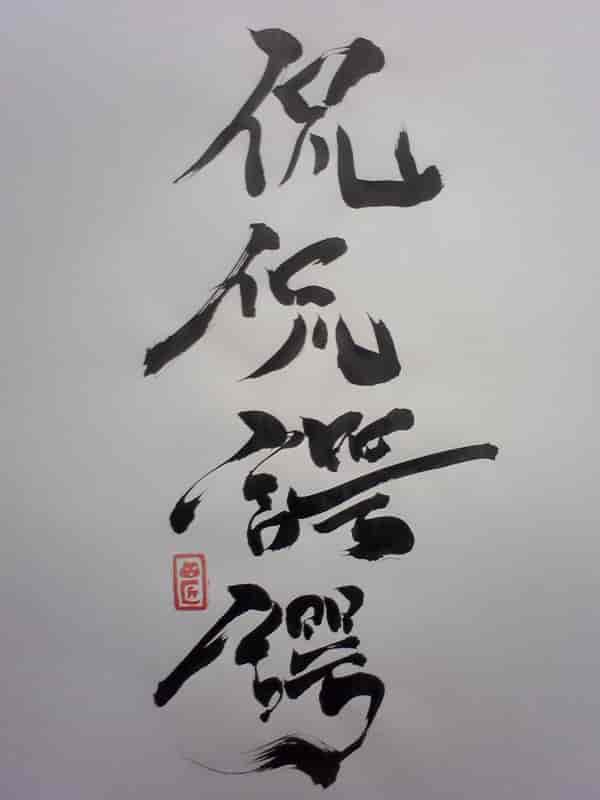 侃侃諤諤